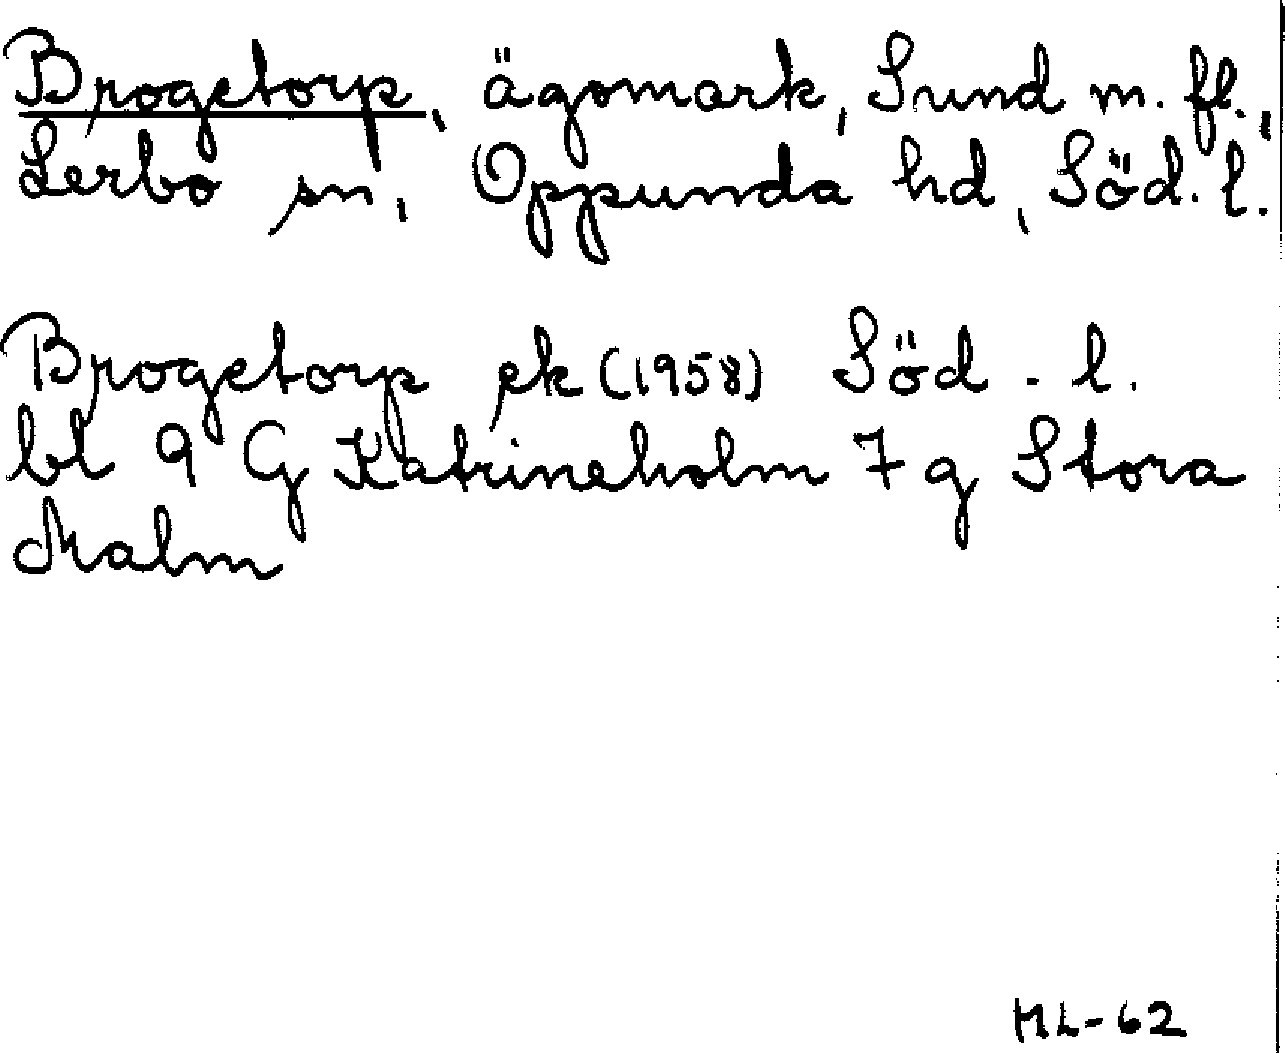 Brogetorp, ägomark, Sund m. fl.,
Lerbo sn, Oppunda hd, Söd. l.
Brogetorp ek (1958) Söd. l.
bl 9 G Katrineholm 7 g Stora
Malm
ML-62